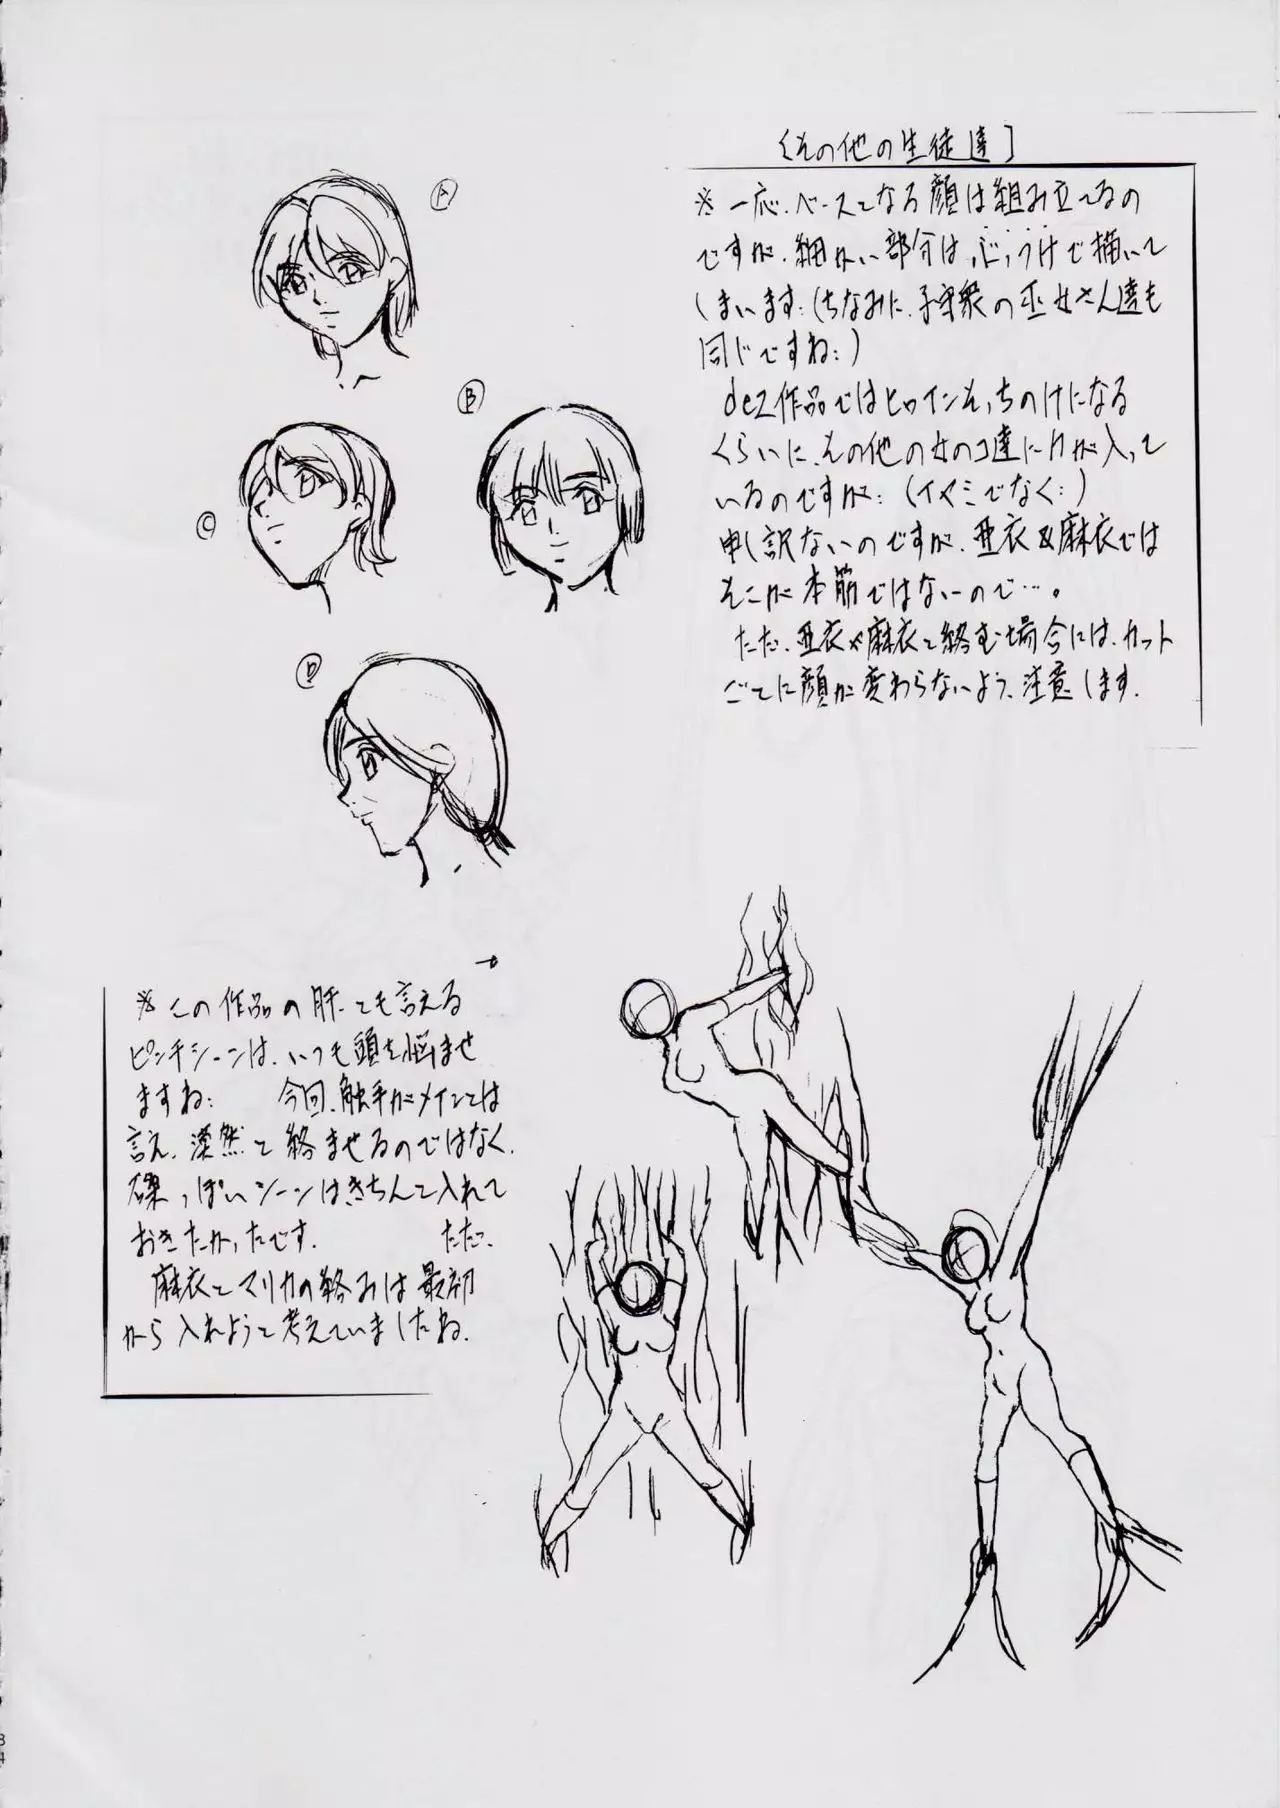 [その他の生徒達]
※一応、ベースとなる顔は組み立てるの
ですが、細かい部分はぶっつけで描いて
しまいます:(ちなみに、子守衆の巫女さん達も
同じですね:)
dez作品ではヒロインそっちのけになる
くらいに、その他の女のコ達に力が入って
いるのですが:(イヤミでなく:)
申し訳ないのですが、亜衣&麻衣では
そこが本筋ではないので…。
ただ、亜衣や麻衣と絡む場合には、カット
ごとに顔が変わらないよう、注意します.
A
B
C
D
※この作品の肝とも言える
ピンチシーンは、いつも頭を悩ませ
ますね: 今回、触手がメインとは
言え、漠然と絡ませるのではなく、
磔っぽいシーンはきちんと入れて
おきたかったです. ただ、
麻衣とマリカの絡みは最初
から入れようと考えていましたね.
34